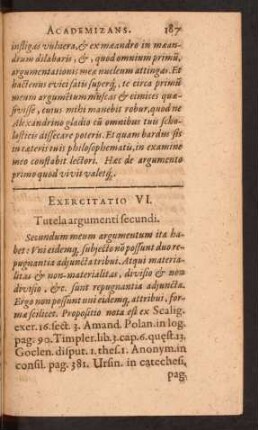 ACADEMIZANS. 187
infligas vulnera, & ex mæandro in mæan-
drum dilabaris, &, quod omnium primũ,
argumentationis meæ nucleum attingas. Et
hactenus evici satis superq;, te circa primũ
meum argumẽtum muscas & cimices quæ-
sivisse, cuius mihi manebit robur, quod ne
Alexandrino gladio cũ omnibus tuis scho-
lasticis dissecare poteris. Et quam bardus sis
in cæteris tuis philosophematis, in examine
meo constabit lectori. Hæc de argumento
primo quod vivit valetq́;.
EXERCITATIO VI.
Tutela argumenti secundi.
Secundum meum argumentum ita ha-
bet: Vni eidemq, subjecto nõ possunt duo re-
pugnantia adjuncta tribui. Atqui materia-
litas & non-materialitas, divisio & non
divisio, &c. sunt repugnantia adjuncta.
Ergo non possunt uni eidemq, attribui, for-
mæ scilicet. Propositio nota est ex Scalig.
exer. 16. sect. 3. Amand. Polan. in log.
pag. 90. Timpler. lib. 3. cap. 6. quęst. 13.
Goclen. disput. 1. thes. 1. Anonym. in
consil. pag. 381. Ursin. in catechesi,
pag.